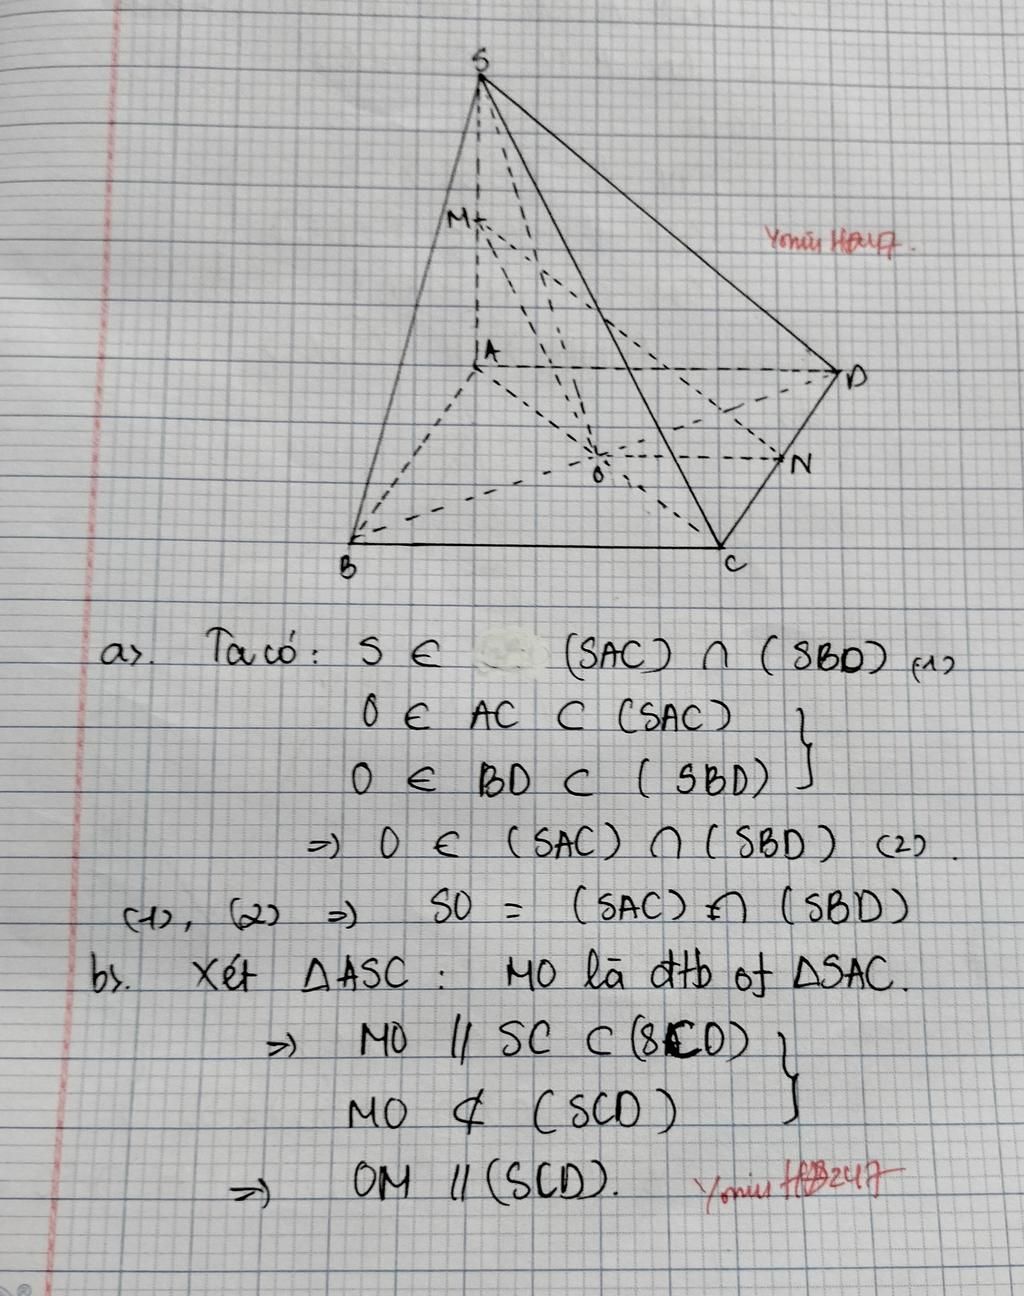 S
M
A
D
O
N
B
C
a). Ta có: S ∈ (SAC) ∩ (SBD) (1)
O ∈ AC ⊂ (SAC) }
O ∈ BD ⊂ (SBD)
=> O ∈ (SAC) ∩ (SBD) (2).
(1), (2) => SO = (SAC) ∩ (SBD)
b). Xét ΔASC: MO là đtb of ΔSAC.
=> MO // SC ⊂ (SCD) }
MO ⊄ (SCD)
=> OM // (SCD).